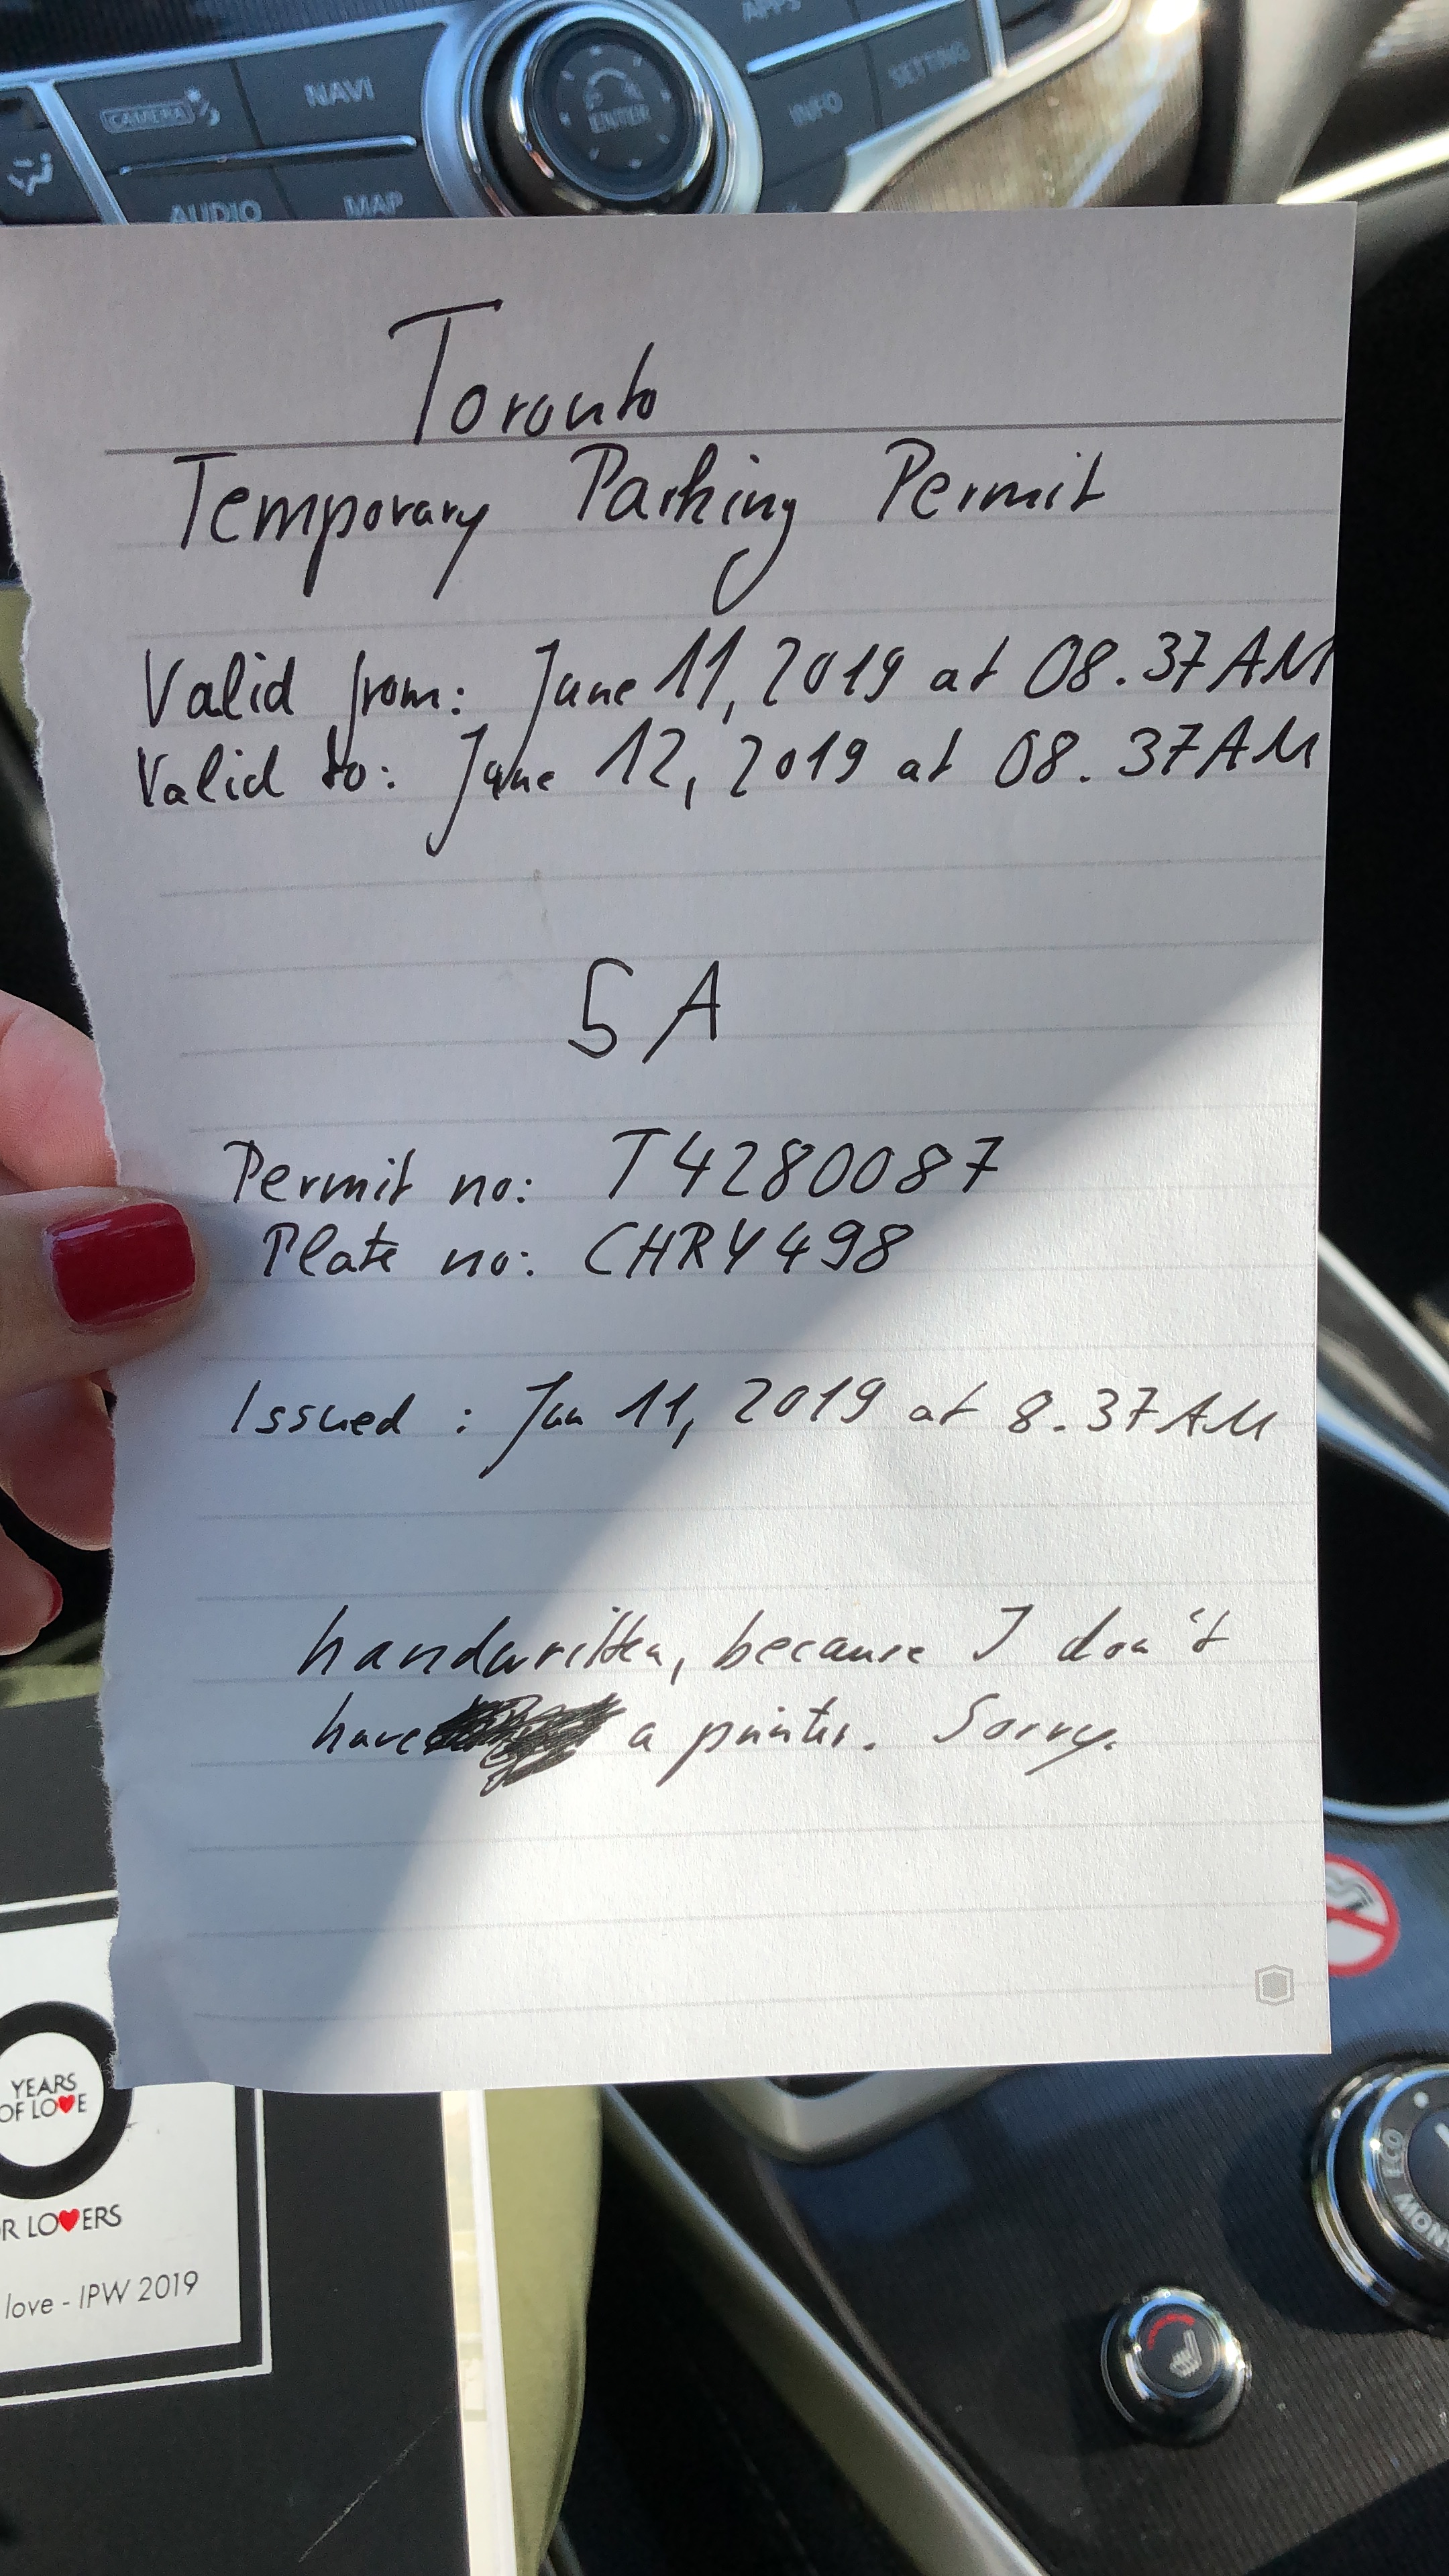 APPS
CAMERA
NAVI
ENTER
INFO
SETTING
AUDIO
MAP
Toronto
Temporary Parking Permit
Valid from: June 11, 2019 at 08.37AM
Valid to: June 12, 2019 at 08.37AM
5A
Permit no: T4280087
Plate no: CHRY498
Issued: Jun 11, 2019 at 8.37AM
handwritten, because I don't
have a printer. Sorry.
YEARS
OF LOVE
R LOVERS
love - IPW 2019
ECO